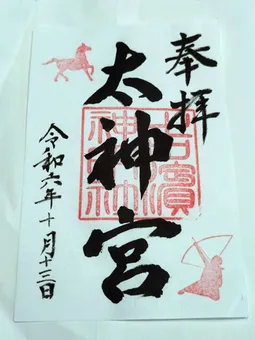 奉拝
太神宮
吉濱
神社
令和六年十月十三日